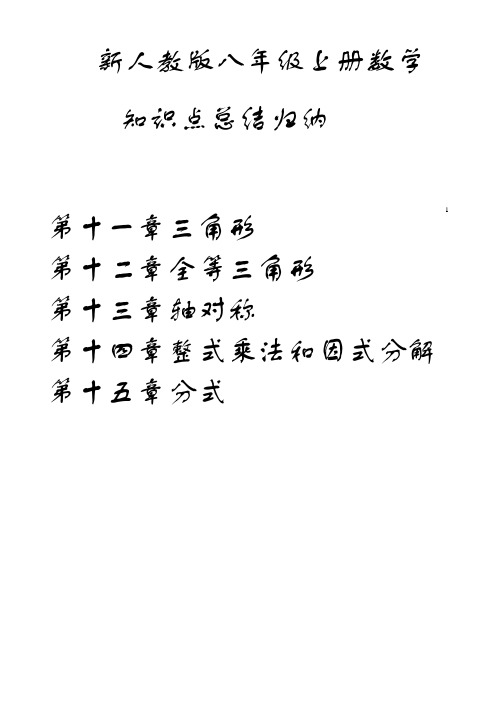 新人教版八年级上册数学
知识点总结归纳
1
第十一章三角形
第十二章全等三角形
第十三章轴对称
第十四章整式乘法和因式分解
第十五章分式